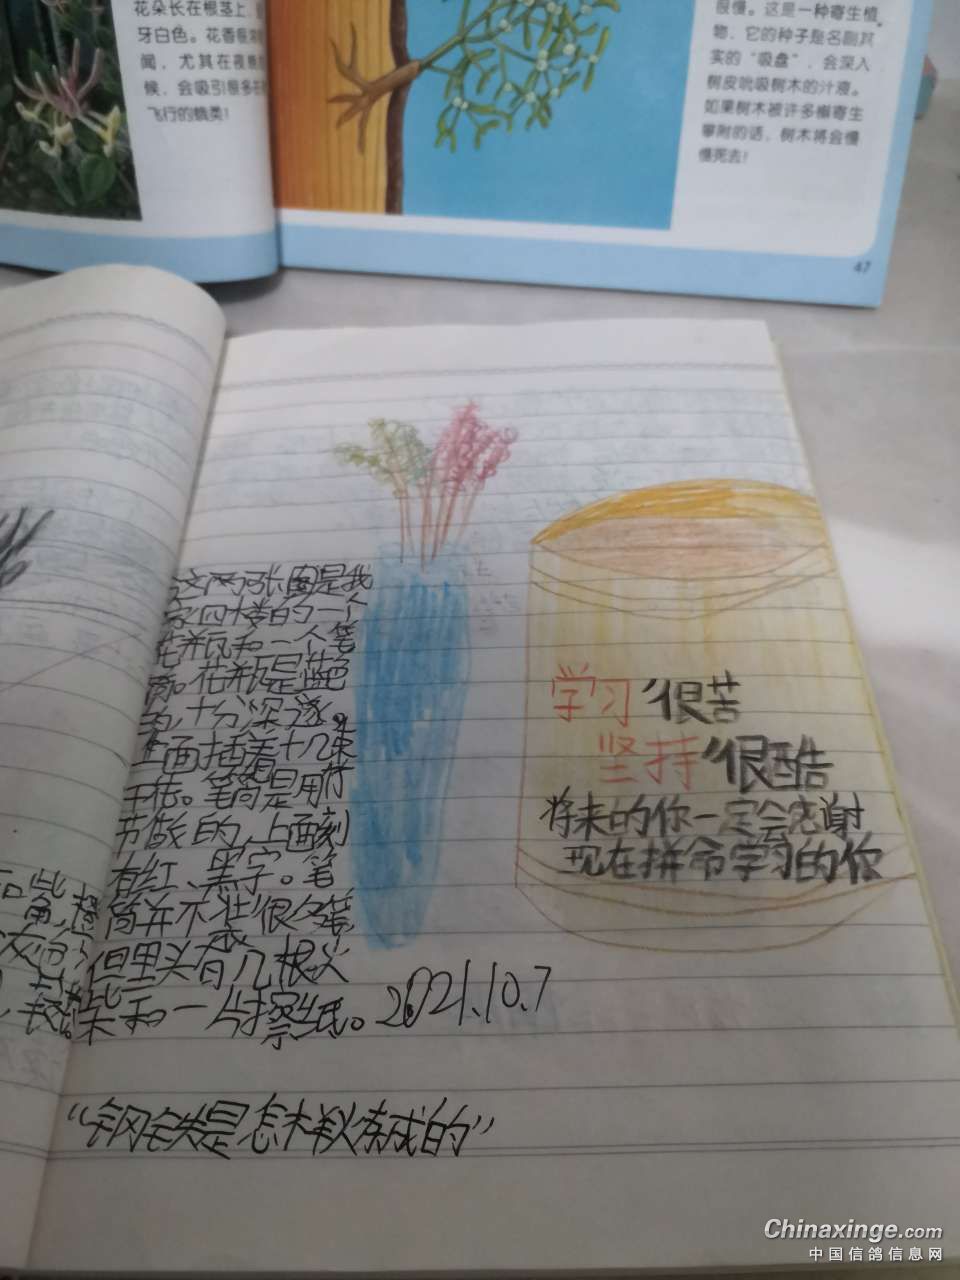 花朵长在根茎上，
牙白色。花香很浓
闻，尤其在夜晚
候，会吸引很多在
飞行的蛾类！
很慢。这是一种寄生植
物，它的种子是名副其
实的“吸盘”，会深入
树皮吮吸树木的汁液。
如果树木被许多槲寄生
攀附的话，树木将会慢
慢死去！
47
这两张图是我
家四楼的一个
花瓶和一个笔
筒。花瓶是蓝色
的，十分深邃。
上面插着十几束
干花。笔筒是用竹
节做的，上面刻
有红、黑字。笔
筒并不装很多笔，
但里头有几根火
柴和一片擦纸。2021.10.7
学习很苦
坚持很酷
将来的你一定会感谢
现在拼命学习的你
“钢铁是怎样炼成的”
Chinaxinge.com
中国信鸽信息网